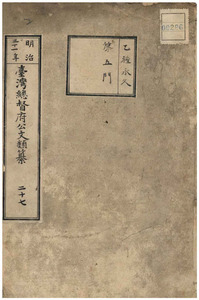 乙種永久
第五門
明治
三十一年
臺灣總督府公文類纂
二十七